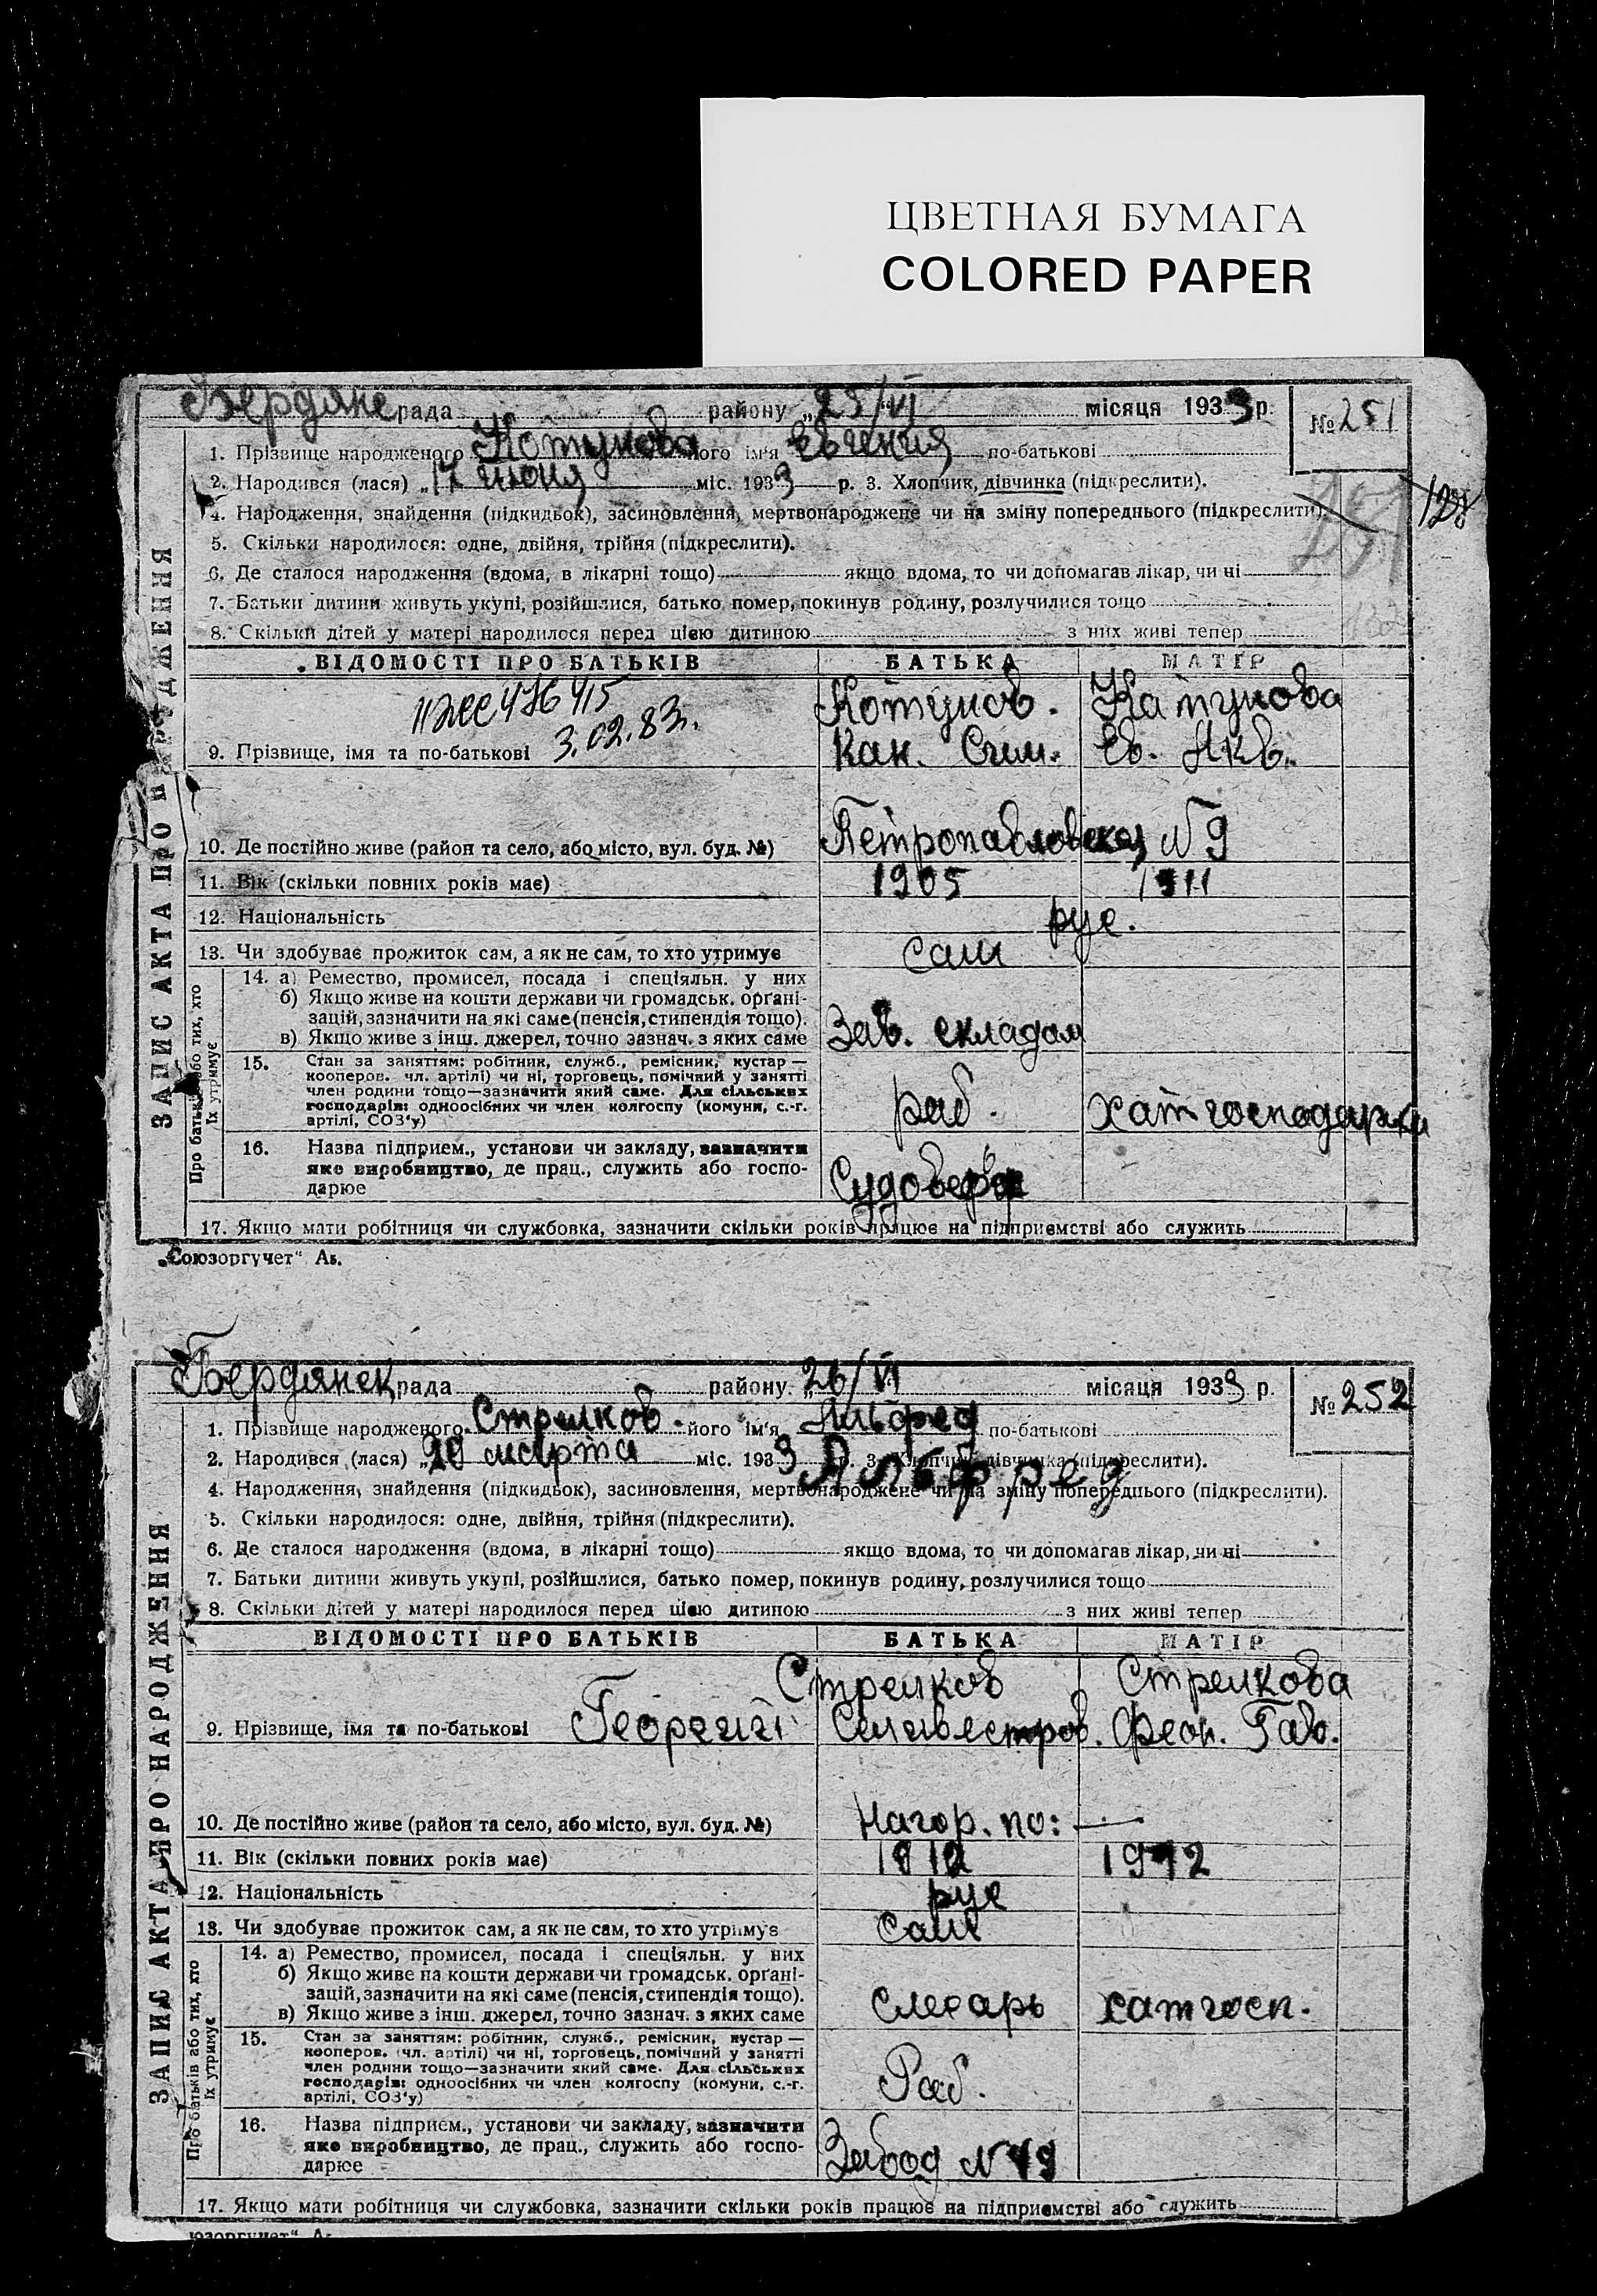 ЦВЕТНАЯ БУМАГА
COLORED PAPER
Бердянс рада району „25/VI місяця 1933 р. № 251
1. Прізвище народженого Котунова його ім'я Евгения по-батькові
2. Народився (лася) „17 июня міс. 1933 р. 3. Хлопчик, дівчинка (підкреслити).
4. Народження, знайдення (підкидьок), засиновлення, мертвонароджене чи на зміну попереднього (підкреслити).
5. Скільки народилося: одне, двійня, трійня (підкреслити).
6. Де сталося народження (вдома, в лікарні тощо) якщо вдома, то чи допомагав лікар, чи ні
7. Батьки дитини живуть укупі, розійшлися, батько помер, покинув родину, розлучилися тощо
8. Скільки дітей у матері народилося перед цією дитиною з них живі тепер
ВІДОМОСТІ ПРО БАТЬКІВ БАТЬКА МАТІР
476415
3.02.83г.
Котунов. Катунова
9. Прізвище, імя та по-батькові Кан. Сим. Ев. Якв.
10. Де постійно живе (район та село, або місто, вул. буд. №) Петропавловская N 9
11. Вік (скільки повних років має) 1905 1911
12. Національність рус.
13. Чи здобуває прожиток сам, а як не сам, то хто утримує сам
14. а) Ремество, промисел, посада і спеціяльн. у них
б) Якщо живе на кошти держави чи громадськ. орґані-
зацій, зазначити на які саме (пенсія, стипендія тощо).
в) Якщо живе з інш. джерел, точно зазнач. з яких саме
Зав. складом
15. Стан за заняттям: робітник, служб., ремісник, кустар —
кооперов. чл. артілі) чи ні, торговець, помічний у занятті
член родини тощо—зазначити який саме. Для сільських
господарів: одноосібних чи член колгоспу (комуни, с.-г.
артілі, СОЗ'у)
раб. хатгосподарка
16. Назва підприєм., установи чи закладу, зазначити
яке виробництво, де прац., служить або госпо-
дарює
Судоверф
17. Якщо мати робітниця чи службовка, зазначити скільки років працює на підприємстві або служить
ЗАПИС АКТА ПРО НАРОДЖЕННЯ
Про батьків або тих, хто
їх утримує
„Союзоргучет“ Аз.
Бердянск рада району „26/VI місяця 1933 р. № 252
1. Прізвище народженого Стрелков. його ім'я Альфред по-батькові
2. Народився (лася) „20 марта міс. 1933 р. 3. Хлопчик, дівчинка (підкреслити).
Альфред
4. Народження, знайдення (підкидьок), засиновлення, мертвонароджене чи на зміну попереднього (підкреслити).
5. Скільки народилося: одне, двійня, трійня (підкреслити).
6. Де сталося народження (вдома, в лікарні тощо) якщо вдома, то чи допомагав лікар, чи ні
7. Батьки дитини живуть укупі, розійшлися, батько помер, покинув родину, розлучилися тощо
8. Скільки дітей у матері народилося перед цією дитиною з них живі тепер
ВІДОМОСТІ ПРО БАТЬКІВ БАТЬКА МАТІР
Стрелков Стрелкова
9. Прізвище, імя та по-батькові Георгій Селивестров. Феон. Гав.
10. Де постійно живе (район та село, або місто, вул. буд. №) Нагор. по: —
11. Вік (скільки повних років має) 1912 1912
12. Національність рус
13. Чи здобуває прожиток сам, а як не сам, то хто утримує сам
14. а) Ремество, промисел, посада і спеціяльн. у них
б) Якщо живе на кошти держави чи громадськ. орґані-
зацій, зазначити на які саме (пенсія, стипендія тощо).
в) Якщо живе з інш. джерел, точно зазнач. з яких саме
слесарь хатгосп.
15. Стан за заняттям: робітник, служб., ремісник, кустар —
кооперов. чл. артілі) чи ні, торговець, помічний у занятті
член родини тощо—зазначити який саме. Для сільських
господарів: одноосібних чи член колгоспу (комуни, с.-г.
артілі, СОЗ'у)
Раб.
16. Назва підприєм., установи чи закладу, зазначити
яке виробництво, де прац., служить або госпо-
дарює
Завод N 19
17. Якщо мати робітниця чи службовка, зазначити скільки років працює на підприємстві або служить
ЗАПИС АКТА ПРО НАРОДЖЕННЯ
Про батьків або тих, хто
їх утримує